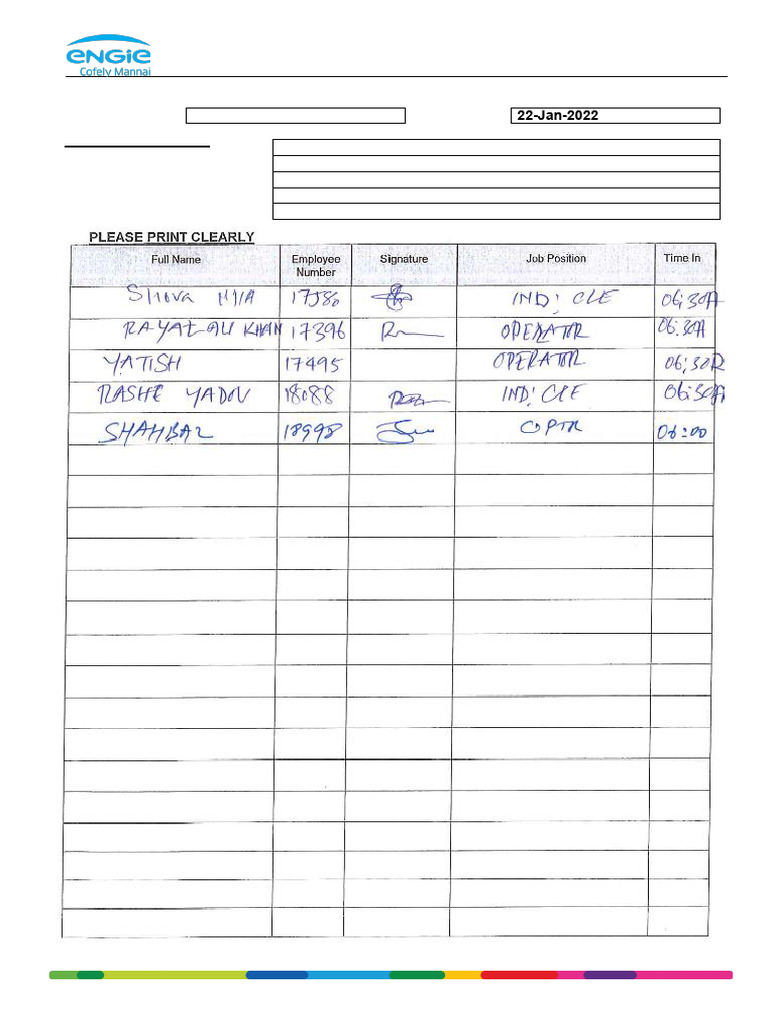 ENGIE
Cofely Mannai
22-Jan-2022
PLEASE PRINT CLEARLY
Full Name Employee Number Signature Job Position Time In
MIA IND: CLE 06:30A
RAYAT ALI KHAN 17396 OPERATOR 06:30A
YATISH 17495 OPERATOR 06:30
RASHE YADOV 18088 IND: CLE 06:30A
SHAHBAZ 18998 OPTR 06:00